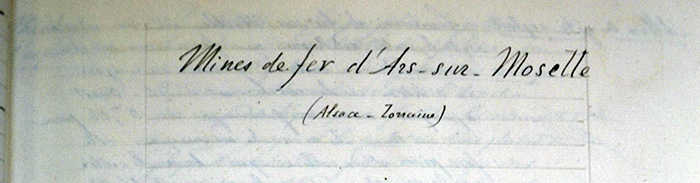 Mines de fer d'Ars-sur-Moselle
(Alsace-Lorraine)